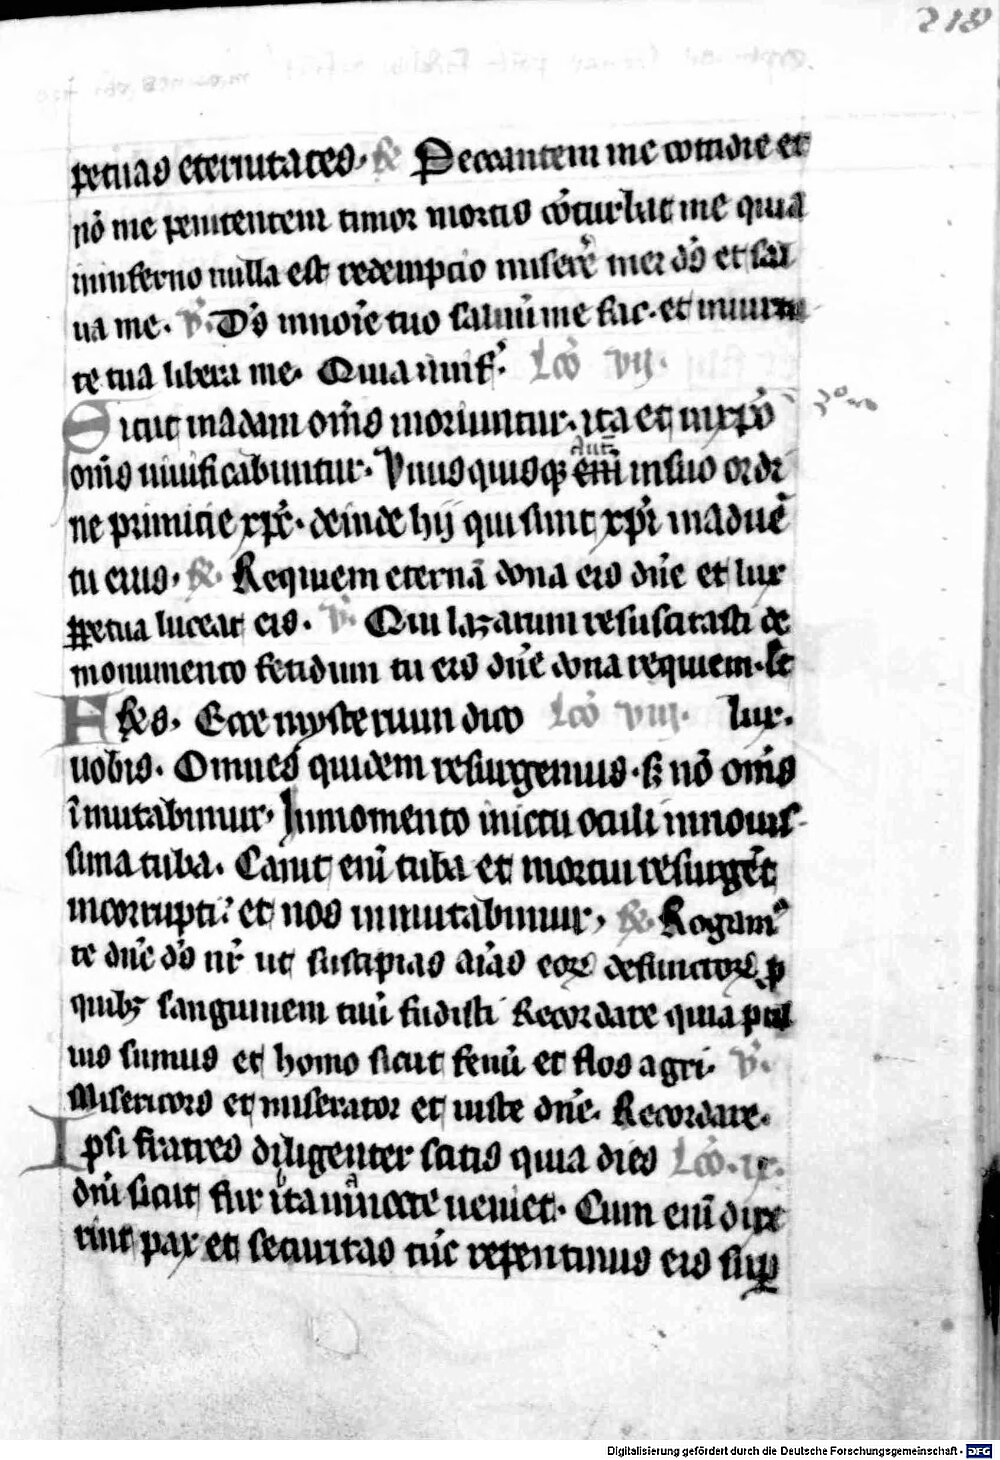 218
petuas eternitates. R Peccantem me cotidie et
nō me penitentem timor mortis cōturbat me quia
in inferno nulla est redemptio miserē mei ds̄ et sal
ua me. V. Ds̄ in noīe tuo saluū me fac. et in uirtu
te tua libera me. Quia in inf̄. Lcō vij.
Sicut in adam om̄s moriuntur. ita et in xpō
om̄s uiuificabuntur. Unus quisqꝫ aut̄ enī in suo ordi
ne primicie xpc̄. deinde hij qui sunt xpī in aduē
tu eius. R. Requiem eternā dona eis dn̄e et lux
ꝑpetua luceat eis. V. Qui lazarum resuscitasti de
monumento fetidum tu eis dn̄e dona requiem. Et
Frēs. Ecce mysterium dico Lcō viij. lux.
uobis. Omnes quidem resurgemus. sꝫ nō om̄s
īmutabimur. In momento in ictu oculi in nouis-
sima tuba. Canit enī tuba et mortui resurgēt
incorrupti. et nos inmutabimur. R Rogamꝰ
te dn̄e ds̄ nr̄ ut suscipias aīas eoꝝ defunctoꝝ ꝓ
quibꝫ sanguinem tuū fudisti Recordare quia pul
uis sumus et homo sicut fenū et flos agri. V.
Misericors et miserator et iuste dn̄e. Recordare.
Ipsi fratres diligenter scitis quia dies Lcō. ix.
dn̄i sicut fur ita in nocte ueniet. Cum enī dixe
rint pax et securitas tūc repentinus eis suꝑ
Digitalisierung gefördert durch die Deutsche Forschungsgemeinschaft - DFG